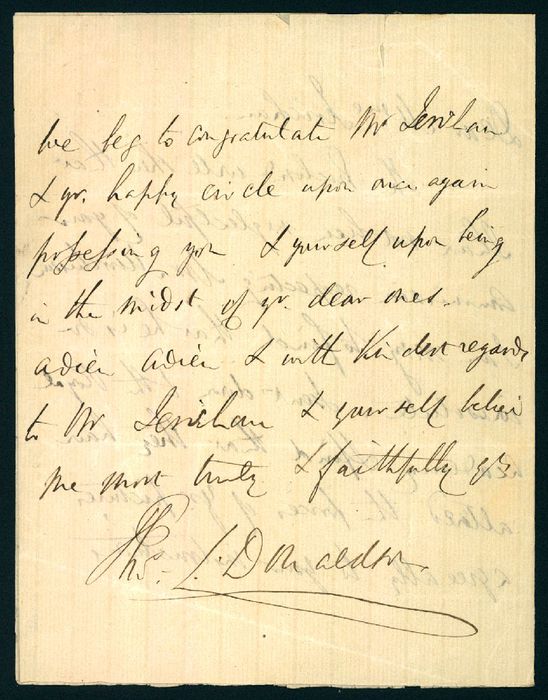 We beg to congratulate Mr Jerichau
& yr. happy circle upon once again
possessing you & yourself upon being
in the midst of yr. dear ones.
adieu adieu & with Kindest regards
to Mr Jerichau & yourself believe
me most truly & faithfully yrs
Thos. L. Donaldson